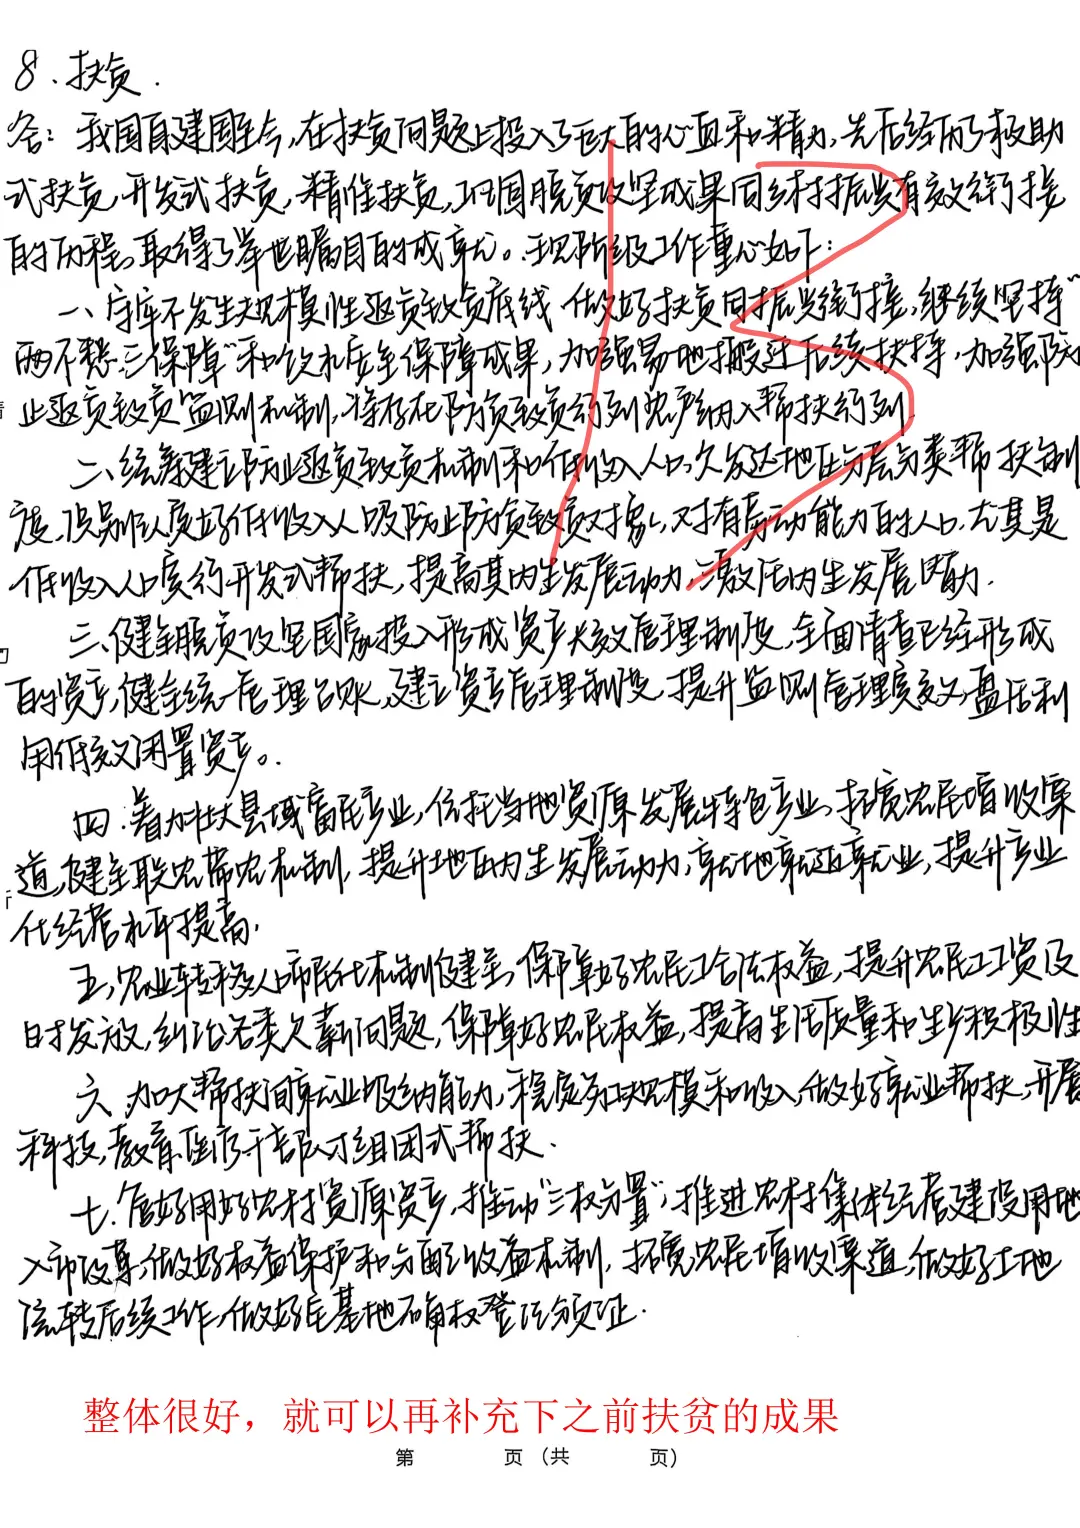 8. 扶贫.
答: 我国自建国至今,在扶贫问题上投入了巨大的心血和精力,先后经历了救助
式扶贫,开发式扶贫,精准扶贫,巩固脱贫攻坚成果同乡村振兴有效衔接
的历程,取得了举世瞩目的成就。现阶段工作重心如下:
一、守牢不发生规模性返贫致贫底线,做好扶贫同振兴衔接,继续坚持"
两不愁三保障"和饮水安全保障成果,加强易地搬迁后续扶持,加强防
止返贫致贫监测机制,将存在防贫致贫行列农户纳入帮扶行列
二、统筹建立防止返贫致贫机制和低收入人口,欠发达地区分层分类帮扶制
度,识别认定好低收入人口及防止防贫致贫对象,对有劳动能力的人口,尤其是
低收入人口实行开发式帮扶,提高其内生发展动力,激活内生发展能力.
三、健全脱贫攻坚国家投入形成资产长效管理制度,全面清查已经形成
的资产,健全统一管理台账,建立资产管理制度,提升监测管理实效,盘活利
用低效闲置资产。
四.着力壮大县域富民产业,依托当地资源发展特色产业,拓宽农民增收渠
道,健全联农带农机制,提升地区内生发展动力,就地就近就业,提升产业
化经营水平提高.
五,农业转移人口市民化机制健全,保障好农民工合法权益,提升农民工工资及
时发放,纠治各类欠薪问题,保障好农民权益,提高生活质量和生产积极性
六、加大帮扶车间就业吸纳能力,稳定务工规模和收入,做好就业帮扶,开展
科技,教育医疗干部人才组团式帮扶.
七.管好用好农村资源资产,推动"三权分置",推进农村集体经营建设用地
入市改革,做好权益保护和分配收益机制,拓宽农民增收渠道,做好土地
流转后续工作,做好宅基地确权登记颁证.
13
整体很好，就可以再补充下之前扶贫的成果
第 页（共 页）